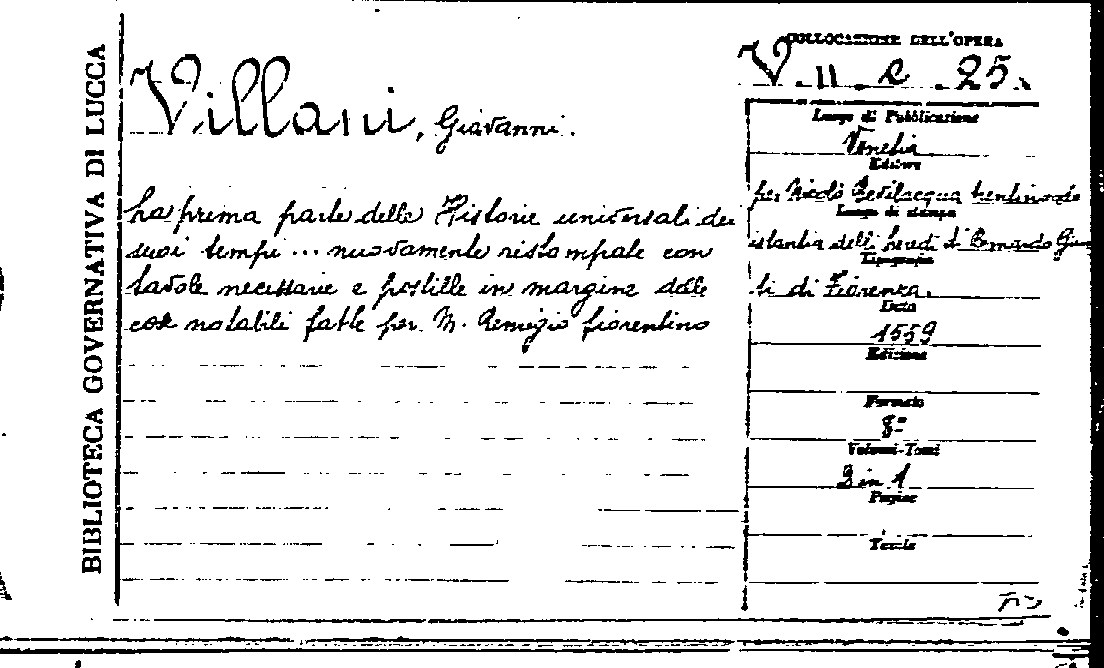 BIBLIOTECA GOVERNATIVA DI LUCCA
Villani, Giovanni.
La prima parte delle Historie universali dei
suoi tempi ... nuovamente ristampate con
tavole necessarie e postille in margine delle
cose notabili fatte per M. Remigio fiorentino
COLLOCAZIONE DELL'OPERA
V. II. e. 25.
Luogo di Pubblicazione
Venetia
Editore
per Nicolò Bevilacqua trentino
Luogo di stampa
istantia delli heredi di Bernardo Giun
Tipografia
ti di Fiorenza.
Data
1559
Edizione
Formato
8º
Volumi-Tomi
3 in 1
Pagine
Tavole